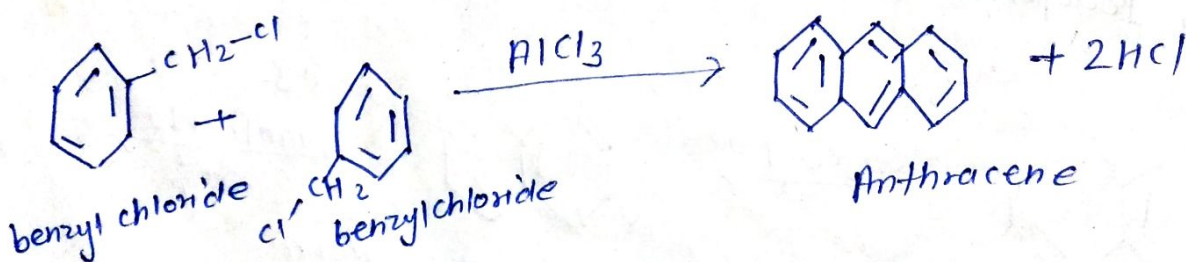 CH2-Cl
+
AlCl3
+ 2HCl
CH2
Cl
benzyl chloride
benzylchloride
Anthracene